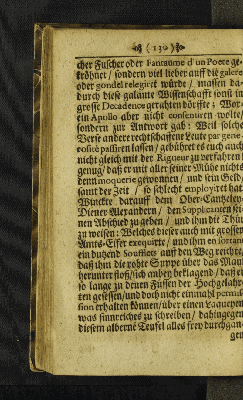 ( 130 )
cher Fuscher oder Fantasme d'un Poete ge-
kröhnet / sondern viel lieber auff die galere
oder gondel relegiret würde / massen da-
durch diese galante Wissenschafft sonst in
grosse Decadence gerahten dörffte ; Wor-
ein Apollo aber nicht consentiren wolte/
sondern zur Antwort gab : Weil solche
Verse andere rechtschaffene Leute par gene-
rosité passiren lassen / gebühret es euch auch
nicht gleich mit der Rigueur zu verfahren
genug/ daß er mit aller seiner Mühe nichts
denn moquerie gewonnen / und sein Geld
samt der Zeit / so schlecht employret hat
Winckte darauff dem Ober-Cantzeley-
Diener Alexandern / den Supplicanten sei-
nen Abschied zu geben / und ihm die Thür
zu weisen: Welches dieser auch mit grossen
Amts-Eifer exequirte / und ihm en sortant
ein dutzend Soufflets auff den Weg reichte,
daß ihm die rohte Suppe über das Maul
herunter floß/ sich anbey beklagend / daß er
so lange zu denen Füssen der Hochgelahr-
ten gesessen/ und doch nicht einmahl permis-
sion erhalten können/ über einen Laqueyen
was sinnreiches zu schreiben / dahingegen
diesem alberne Teufel alles frey durchgan-
gen